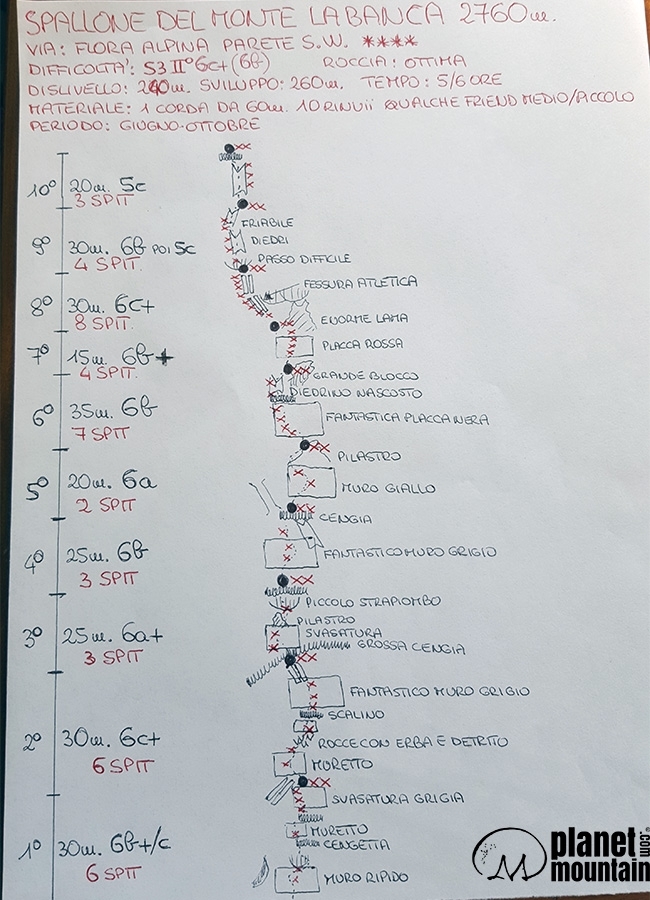 SPALLONE DEL MONTE LA BANCA 2760m.
VIA: FLORA ALPINA PARETE S.W. ****
DIFFICOLTA': S3 II° 6c+ (6b) ROCCIA: OTTIMA
DISLIVELLO: 240m. SVILUPPO: 260m. TEMPO: 5/6 ORE
MATERIALE: 1 CORDA DA 60m. 10 RINVII QUALCHE FRIEND MEDIO/PICCOLO
PERIODO: GIUGNO-OTTOBRE
10° 20m. 5c
3 SPIT
FRIABILE
DIEDRI
9° 30m. 6b POI 5c
4 SPIT.
PASSO DIFFICILE
FESSURA ATLETICA
8° 30m. 6c+
8 SPIT.
ENORME LAMA
7° 15m. 6b+
4 SPIT.
PLACCA ROSSA
GRANDE BLOCCO
DIEDRINO NASCOSTO
6° 35m. 6b
7 SPIT
FANTASTICA PLACCA NERA
PILASTRO
5° 20m. 6a
2 SPIT
MURO GIALLO
CENGIA
4° 25m. 6b
3 SPIT
FANTASTICO MURO GRIGIO
PICCOLO STRAPIOMBO
PILASTRO
3° 25m. 6a+
3 SPIT
SVASATURA
GROSSA CENGIA
FANTASTICO MURO GRIGIO
SCALINO
2° 30m. 6c+
6 SPIT
ROCCE CON ERBA E DETRITO
MURETTO
SVASATURA GRIGIA
MURETTO
CENGETTA
1° 30m. 6b+/c
6 SPIT
MURO RIPIDO
planet
mountain
.com